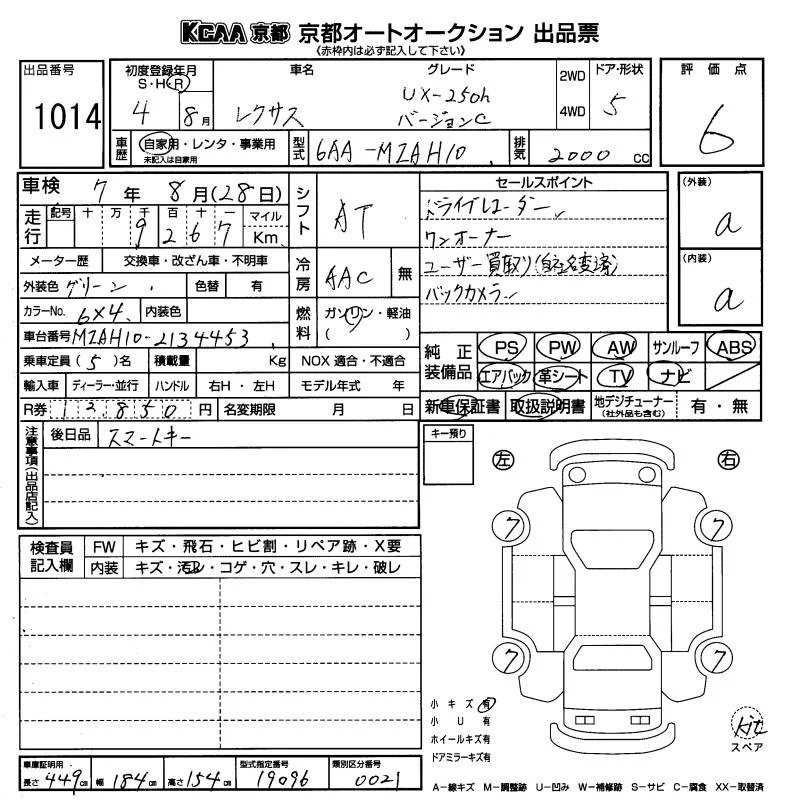 KCAA京都 京都オートオークション 出品票
《赤枠内は必ず記入して下さい》
出品番号
1014
初度登録年月
S・H・R
4 8月
車名
レクサス
グレード
UX-250h
バージョンC
2WD
4WD
ドア・形状
5
評価点
6
車歴
自家用・レンタ・事業用
未記入は自家用
型式
6AA-MZAH10
排気
2000 CC
車検 7年 8月(28日)
走行
記号 十 万 千 百 十 一 マイル
9 2 6 7 Km
メーター歴 交換車・改ざん車・不明車
外装色 グリーン 色替 有
カラーNo. 6X4 内装色
車台番号 MZAH10-2134453
乗車定員(5)名 積載量 Kg
輸入車 ディーラー・並行 ハンドル 右H・左H
R券 12850円 名変期限 月 日
シフト AT
冷房 AAC 無
燃料 ガソリン・軽油
( )
NOX適合・不適合
モデル年式 年
セールスポイント
ドライブレコーダー
ワンオーナー
ユーザー買取り(自社名変済)
バックカメラ
(外装)
a
(内装)
a
純正装備品
PS PW AW サンルーフ ABS
エアバック 革シート TV ナビ
新車保証書 取扱説明書 地デジチューナー(社外品も含む) 有・無
注意事項(出品店記入)
後日品 スマートキー
キー預り
左
右
7 7
7 7
検査員記入欄
FW キズ・飛石・ヒビ割・リペア跡・X要
内装 キズ・汚レ・コゲ・穴・スレ・キレ・破レ
小キズ有
小U有
ホイールキズ有
ドアミラーキズ有
kit
スペア
車庫証明用
長さ 449cm 幅 184cm 高さ 154cm
型式指定番号
19096
類別区分番号
0021
A-線キズ M-調整跡 U-凹み W-補修跡 S-サビ C-腐食 XX-取替済